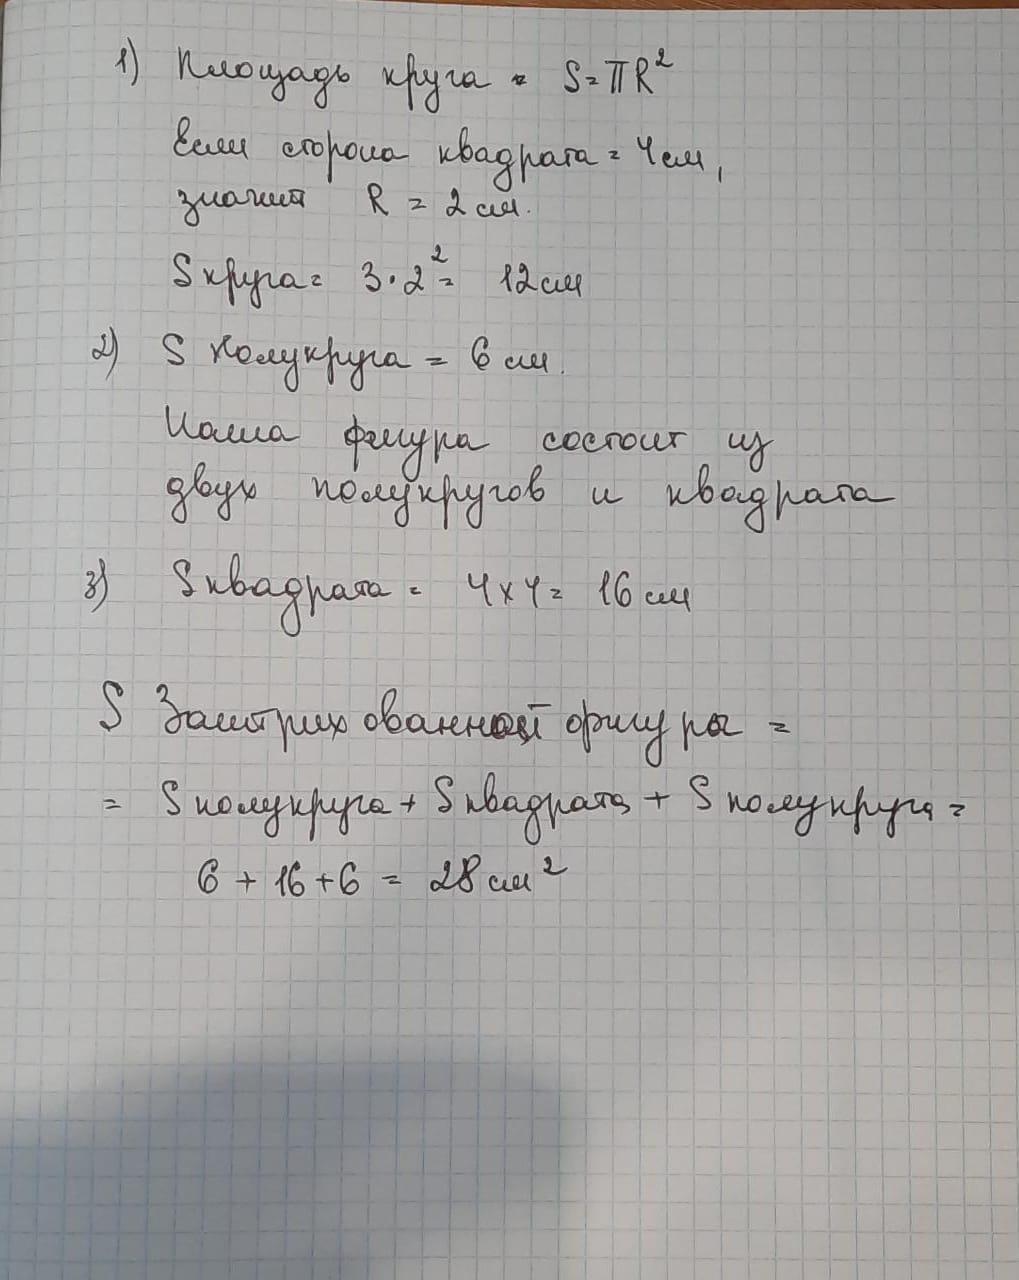 1) Площадь круга = S=πR²
Если сторона квадрата = 4см,
значит R = 2 см.
S круга = 3·2² = 12 см
2) S полукруга = 6 см.
Наша фигура состоит из
двух полукругов и квадрата
3) S квадрата = 4×4 = 16 см
S Заштрихованной фигуры =
= S полукруга + S квадрата + S полукруга =
6 + 16 + 6 = 28 см²